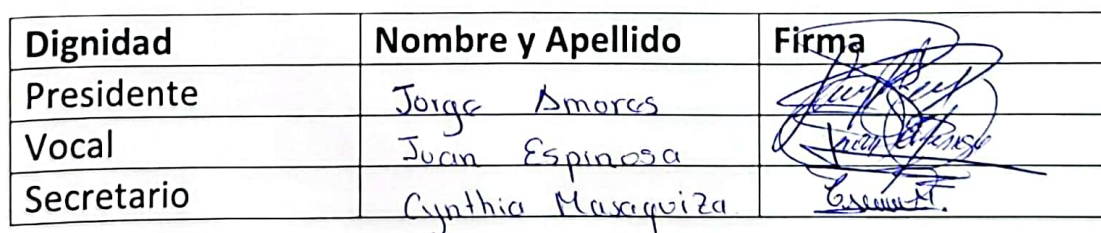 Dignidad Nombre y Apellido Firma
Presidente Jorge Amores
Vocal Juan Espinosa
Secretario Cynthia Masaquiza